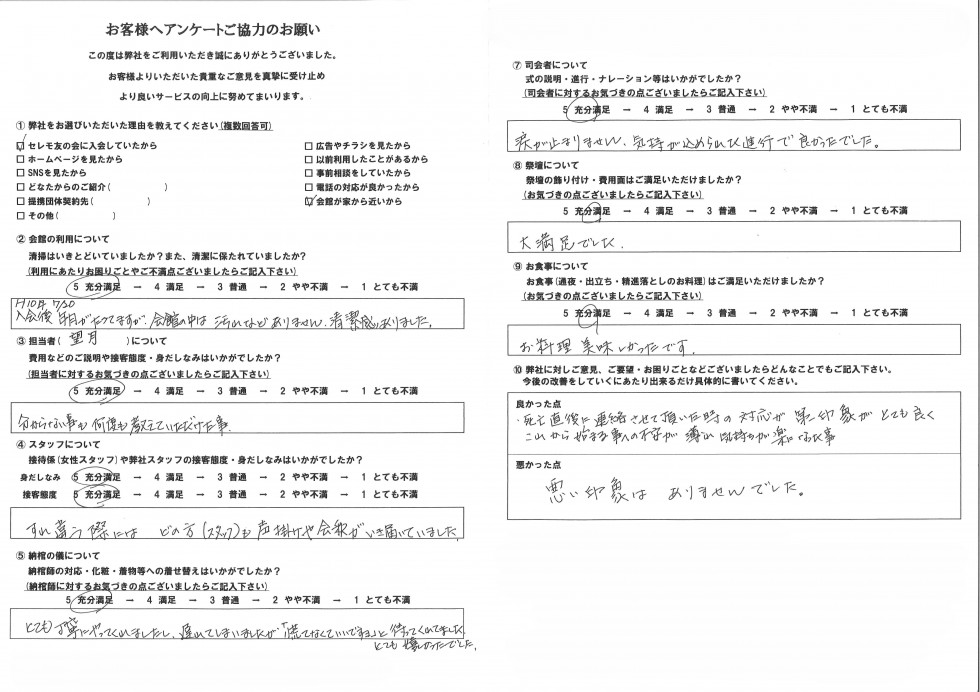 お客様へアンケートご協力のお願い
この度は弊社をご利用いただき誠にありがとうございました。
お客様よりいただいた貴重なご意見を真摯に受け止め
より良いサービスの向上に努めてまいります。
① 弊社をお選びいただいた理由を教えてください(複数回答可)
☑ セレモ友の会に入会していたから
□ ホームページを見たから
□ SNSを見たから
□ どなたからのご紹介( )
□ 提携団体契約先( )
□ その他( )
□ 広告やチラシを見たから
□ 以前利用したことがあるから
□ 事前相談をしていたから
□ 電話の対応が良かったから
☑ 会館が家から近いから
② 会館の利用について
清掃はいきとどいていましたか?また、清潔に保たれていましたか?
(利用にあたりお困りごとやご不満点ございましたらご記入下さい)
5 充分満足 → 4 満足 → 3 普通 → 2 やや不満 → 1 とても不満
H10年 7/30
入会後 年月がたってますが、会館の中は 汚れなど ありません、清潔感ありました。
③ 担当者( 望月 )について
費用などのご説明や接客態度・身だしなみはいかがでしたか?
(担当者に対するお気づきの点ございましたらご記入下さい)
5 充分満足 → 4 満足 → 3 普通 → 2 やや不満 → 1 とても不満
分からない事も 何度も 教えていただけた事。
④ スタッフについて
接待係(女性スタッフ)や弊社スタッフの接客態度・身だしなみはいかがでしたか?
身だしなみ 5 充分満足 → 4 満足 → 3 普通 → 2 やや不満 → 1 とても不満
接客態度 5 充分満足 → 4 満足 → 3 普通 → 2 やや不満 → 1 とても不満
すれ違う際には どの方(スタッフ)も 声掛けや会釈がいき届いていました。
⑤ 納棺の儀について
納棺師の対応・化粧・着物等への着せ替えはいかがでしたか?
(納棺師に対するお気づきの点ございましたらご記入下さい)
5 充分満足 → 4 満足 → 3 普通 → 2 やや不満 → 1 とても不満
とても丁寧にやってくれましたし、遅れてしまいましたが「慌てなくていいですよ」と 待ってくれてました
とても 嬉しかったでした。
⑦ 司会者について
式の説明・進行・ナレーション等はいかがでしたか?
(司会者に対するお気づきの点ございましたらご記入下さい)
5 充分満足 → 4 満足 → 3 普通 → 2 やや不満 → 1 とても不満
涙が止まりません、気持が込められた進行で 良かったでした。
⑧ 祭壇について
祭壇の飾り付け・費用面はご満足いただけましたか?
(お気づきの点ございましたらご記入下さい)
5 充分満足 → 4 満足 → 3 普通 → 2 やや不満 → 1 とても不満
大満足でした。
⑨ お食事について
お食事(通夜・出立ち・精進落としのお料理)はご満足いただけましたか?
(お気づきの点ございましたらご記入下さい)
5 充分満足 → 4 満足 → 3 普通 → 2 やや不満 → 1 とても不満
お料理 美味しかったです。
⑩ 弊社に対しご意見、ご要望・お困りごとなどございましたらどんなことでもご記入下さい。
今後の改善をしていくにあたり出来るだけ具体的に書いてください。
良かった点
・死亡直後に連絡させて頂いた時の 対応が 第一印象が とても良く
これから始まる事への不安が 薄れ 気持ちが楽になった事
悪かった点
悪い印象は ありませんでした。